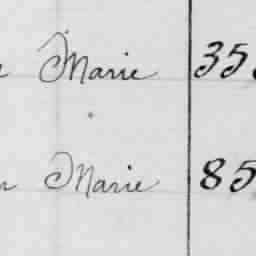 Marie 35
Marie 85